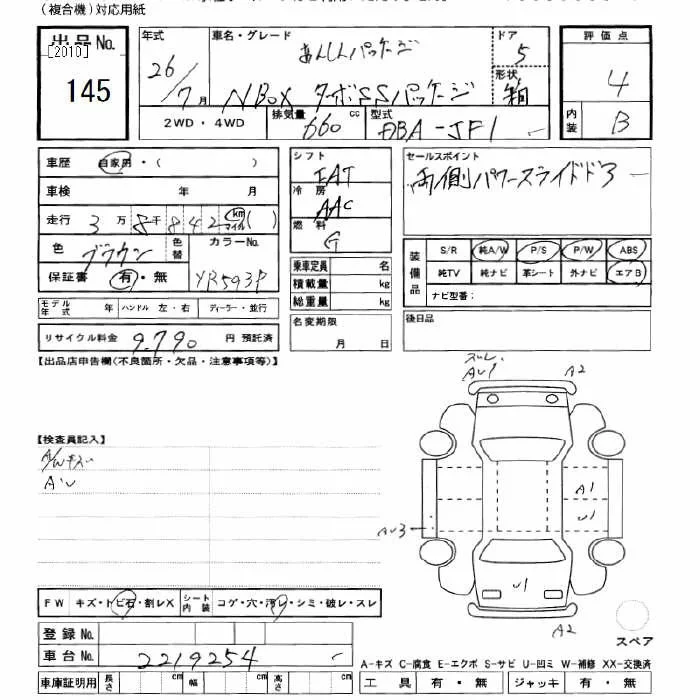 (複合機)対応用紙
出品No.
[2010]
145
年式
26/7月
車名・グレード
あんしんパッケージ
NBOX ターボSSパッケージ
ドア
5
形状
箱
評価点
4
内装
B
2WD・4WD
排気量
660 cc
型式
DBA-JF1
車歴
自家用・( )
車検 年 月
走行 3万8千842 km マイル ( )
色
ブラウン
色替
カラーNo.
YR593P
保証書 有・無
モデル年式 年 ハンドル 左・右 ディーラー・並行
リサイクル料金 9,790 円 預託済
シフト
IAT
冷房
AAC
燃料
G
乗車定員 名
積載量 kg
総重量 kg
名変期限
月 日
セールスポイント
両側パワースライドドア
装備品
S/R 純A/W P/S P/W ABS
純TV 純ナビ 革シート 外ナビ エアB
ナビ型番:
後日品
【出品店申告欄(不良箇所・欠品・注意事項等)】
スレ
AU1
A2
【検査員記入】
A/Wキズ
A'U
A1
U1
AU3
U1
A2
スペア
FW キズ・トビ石・割レX
シート内装 コゲ・穴・汚レ・シミ・破レ・スレ
登録No.
車台No. 2219254
車庫証明用 長さ cm 幅 cm 高さ cm
A-キズ C-腐食 E-エクボ S-サビ U-凹ミ W-補修 XX-交換済
工具 有・無 ジャッキ 有・無